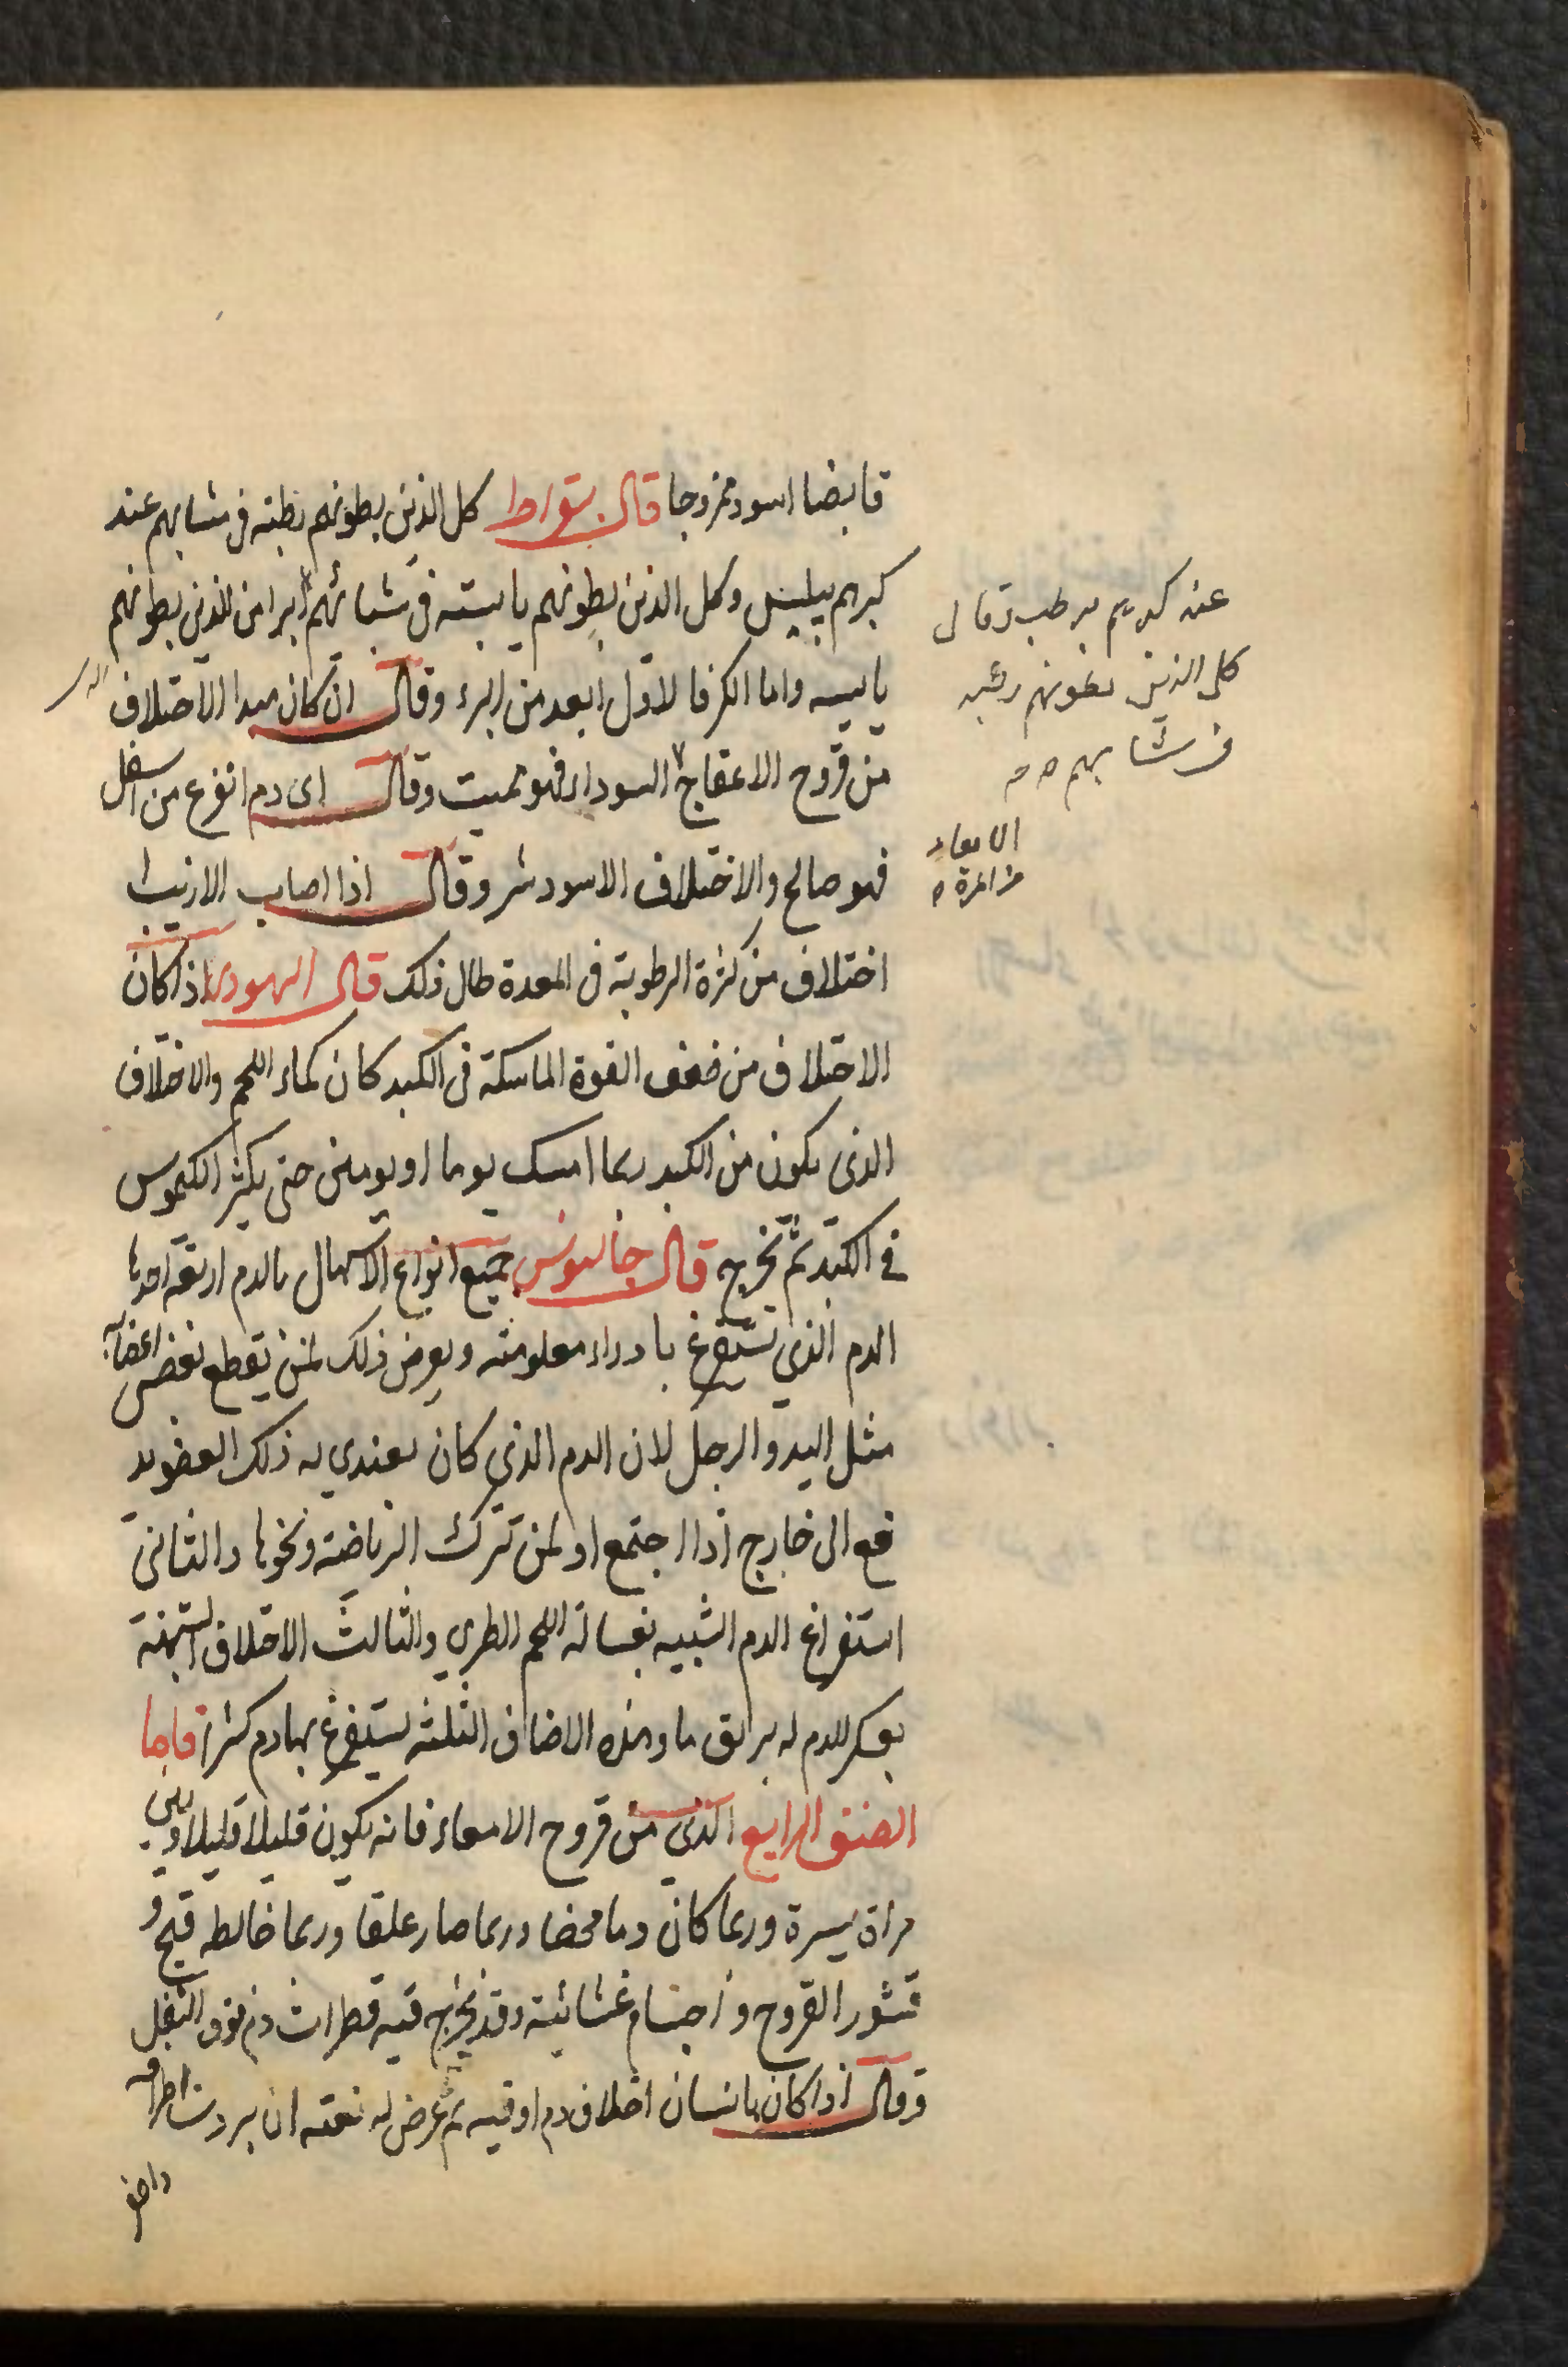 قابضا اسود ممزوجا قال بقراط كل الذين بطونهم رطبة فى شبابهم عند
كبرهم ييبس وكل الذين بطونهم يابسة فى شبابهم ابرا من الذين بطونهم
يابسه واما الكرفا لاول ابعد من البرء وقال ان كان مبدا الاختلاف
من قروح الامعاج السوداء فهو مميت وقال اى دم انفرغ من اسفل
فهو صالح والاختلاف الاسود شر وقال اذا اصاب
اختلاف من كثرة الرطوبة فى المعدة طال ذلك قال اليهودى اذا كان
الاختلاف من ضعف القوة الماسكة فى الكبد كان كماء اللحم والاختلاف
الذى يكون من الكبد ربما امسك يوما او يومين حتى يكثر الكيموس
فى الكبد ثم يخرج قال جالينوس جميع انواع الاسهال بالدم اربعة احدها
الدم الذي يستفرغ بادواء معلومته ويعرض ذلك لمن يقطع بعض اعضائه
مثل اليد والرجل لان الدم الذي كان يغتدي به ذلك العضو يد
فع الى خارج اذا اجتمع او لمن ترك الرياضة ونحوها والثانى
استفراغ الدم الشبيه بغسالة اللحم الطري والثالث الاختلاف
بعكر الدم له بريق ما وهذه الاصناف الثلثة يستفرغ بها دم كثير فاما
الصنف الرابع الذي من قروح الامعاء فانه يكون قليلا قليلا وبين
مراة يسيرة وربما كان دما محضا وربما صار علقا وربما خالطه قيح و
قشور القروح و اجسام غشائية وقد يخرج فيه قطرات دم فوق الثفل
وقال اذا كان بانسان اختلاف دم اوقيه ثم عرض له بغتة ان بردت اطرافه
عند كبرهم يرطب وقال
كل الذين بطونهم رطبه
فى شبابهم صح
الامعاء
من المرة